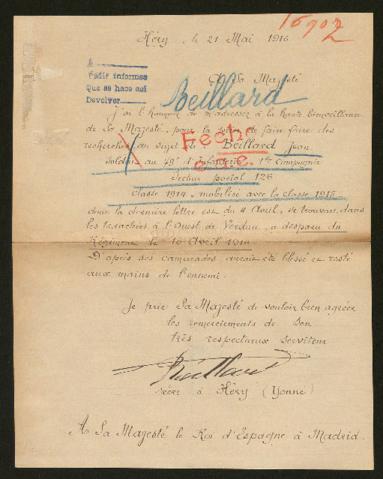 16902
Héry, le 21 Mai 1916
A
Pedir informes
Que se hace así
Devolver
A Sa Majesté
Beillard
J'ai l'honneur de m'adresser à la haute bienveillance
de Sa Majesté, pour la prier de faire faire des
recherches au sujet de Beillard Jean
Fecho
ete.
Soldat au 49e d'Infanterie 1ère Compagnie
Secteur postal 126
Classe 1914, mobilisé avec la classe 1915
dont la dernière lettre est du 4 Avril, se trouvait dans
les tranchées à l'Ouest de Verdun, a disparu du
Régiment le 10 Avril 1916
D'après ses camarades aurait été blessé et resté
aux mains de l'ennemi.
Je prie Sa Majesté de vouloir bien agréer
les remerciements de son
très respectueux serviteur
Beillard
à Héry (Yonne)
A Sa Majesté le Roi d'Espagne à Madrid.